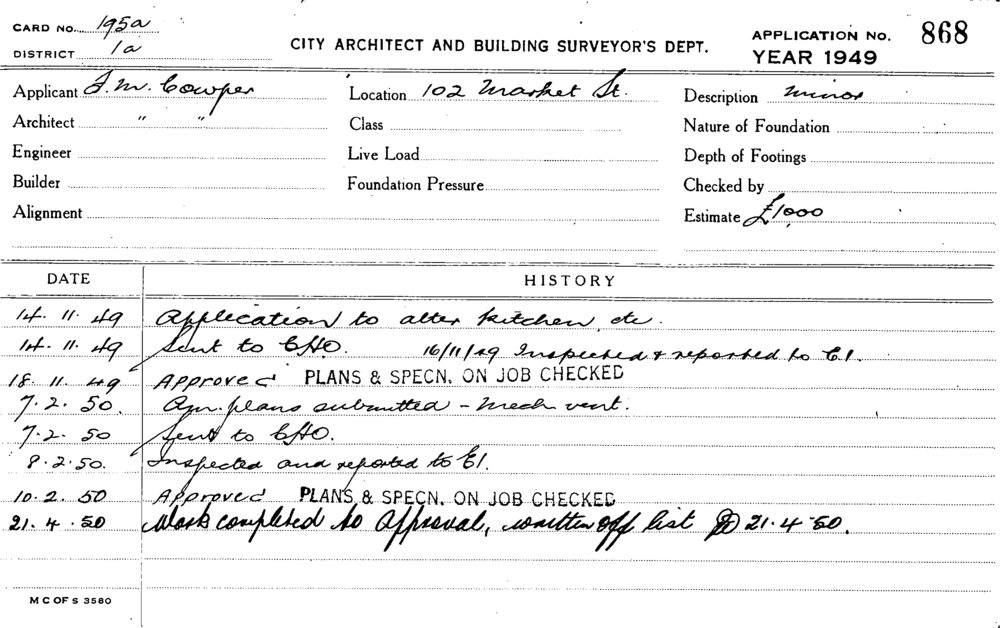 CARD NO. 195a
DISTRICT 1a
CITY ARCHITECT AND BUILDING SURVEYOR'S DEPT.
APPLICATION NO. 868
YEAR 1949
Applicant J. M. Cowper Location 102 Market St. Description minor
Architect " " Class Nature of Foundation
Engineer Live Load Depth of Footings
Builder Foundation Pressure Checked by
Alignment Estimate £1000
DATE HISTORY
14. 11. 49 Application to alter kitchen, etc.
14. 11. 49 Sent to CHO. 16/11/49 Inspected & reported to E1.
18. 11. 49 Approved PLANS & SPECN. ON JOB CHECKED
7. 2. 50. Am. plans submitted - Mech vent.
7. 2. 50 Sent to CHO.
8. 2. 50. Inspected and reported to E1.
10. 2. 50 Approved PLANS & SPECN. ON JOB CHECKED
21. 4. 50 Work completed to Approval, written off list 21. 4. 50.
M C OF S 3580